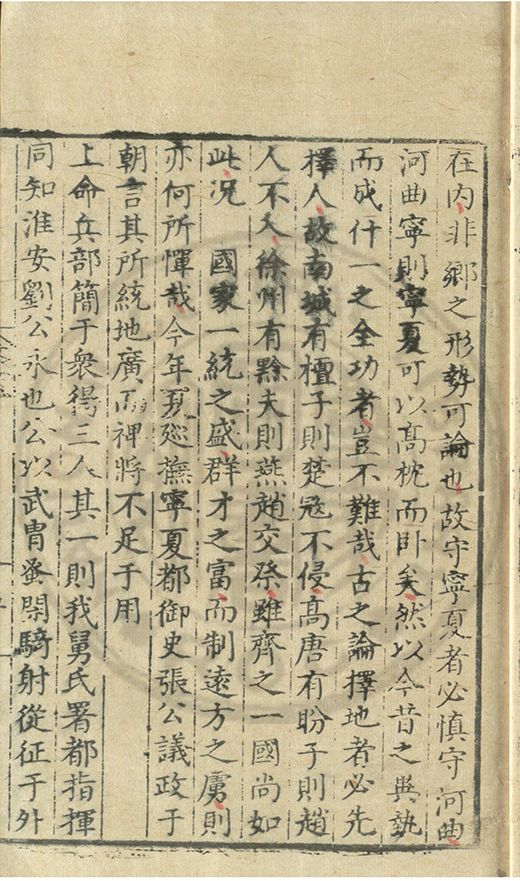 在内非鄉之形勢可論也故守寧夏者必慎守河曲
河曲寧則寧夏可以高枕而卧矣然以今昔之異執
而成什一之全功者豈不難哉古之論擇地者必先
擇人故南城有檀子則楚冦不侵高唐有盼子則趙
人不入徐州有黔夫則燕趙交祭雖齊之一國尚如
此况　國家一統之盛群才之富而制遠方之虜則
亦何所憚哉今年夏廵撫寧夏都御史張公議政于
朝言其所統地廣而裨將不足于用
上命兵部簡于衆得三人其一則我舅氏署都指揮
同知淮安劉公永也公以武胄蚤閑騎射從征于外